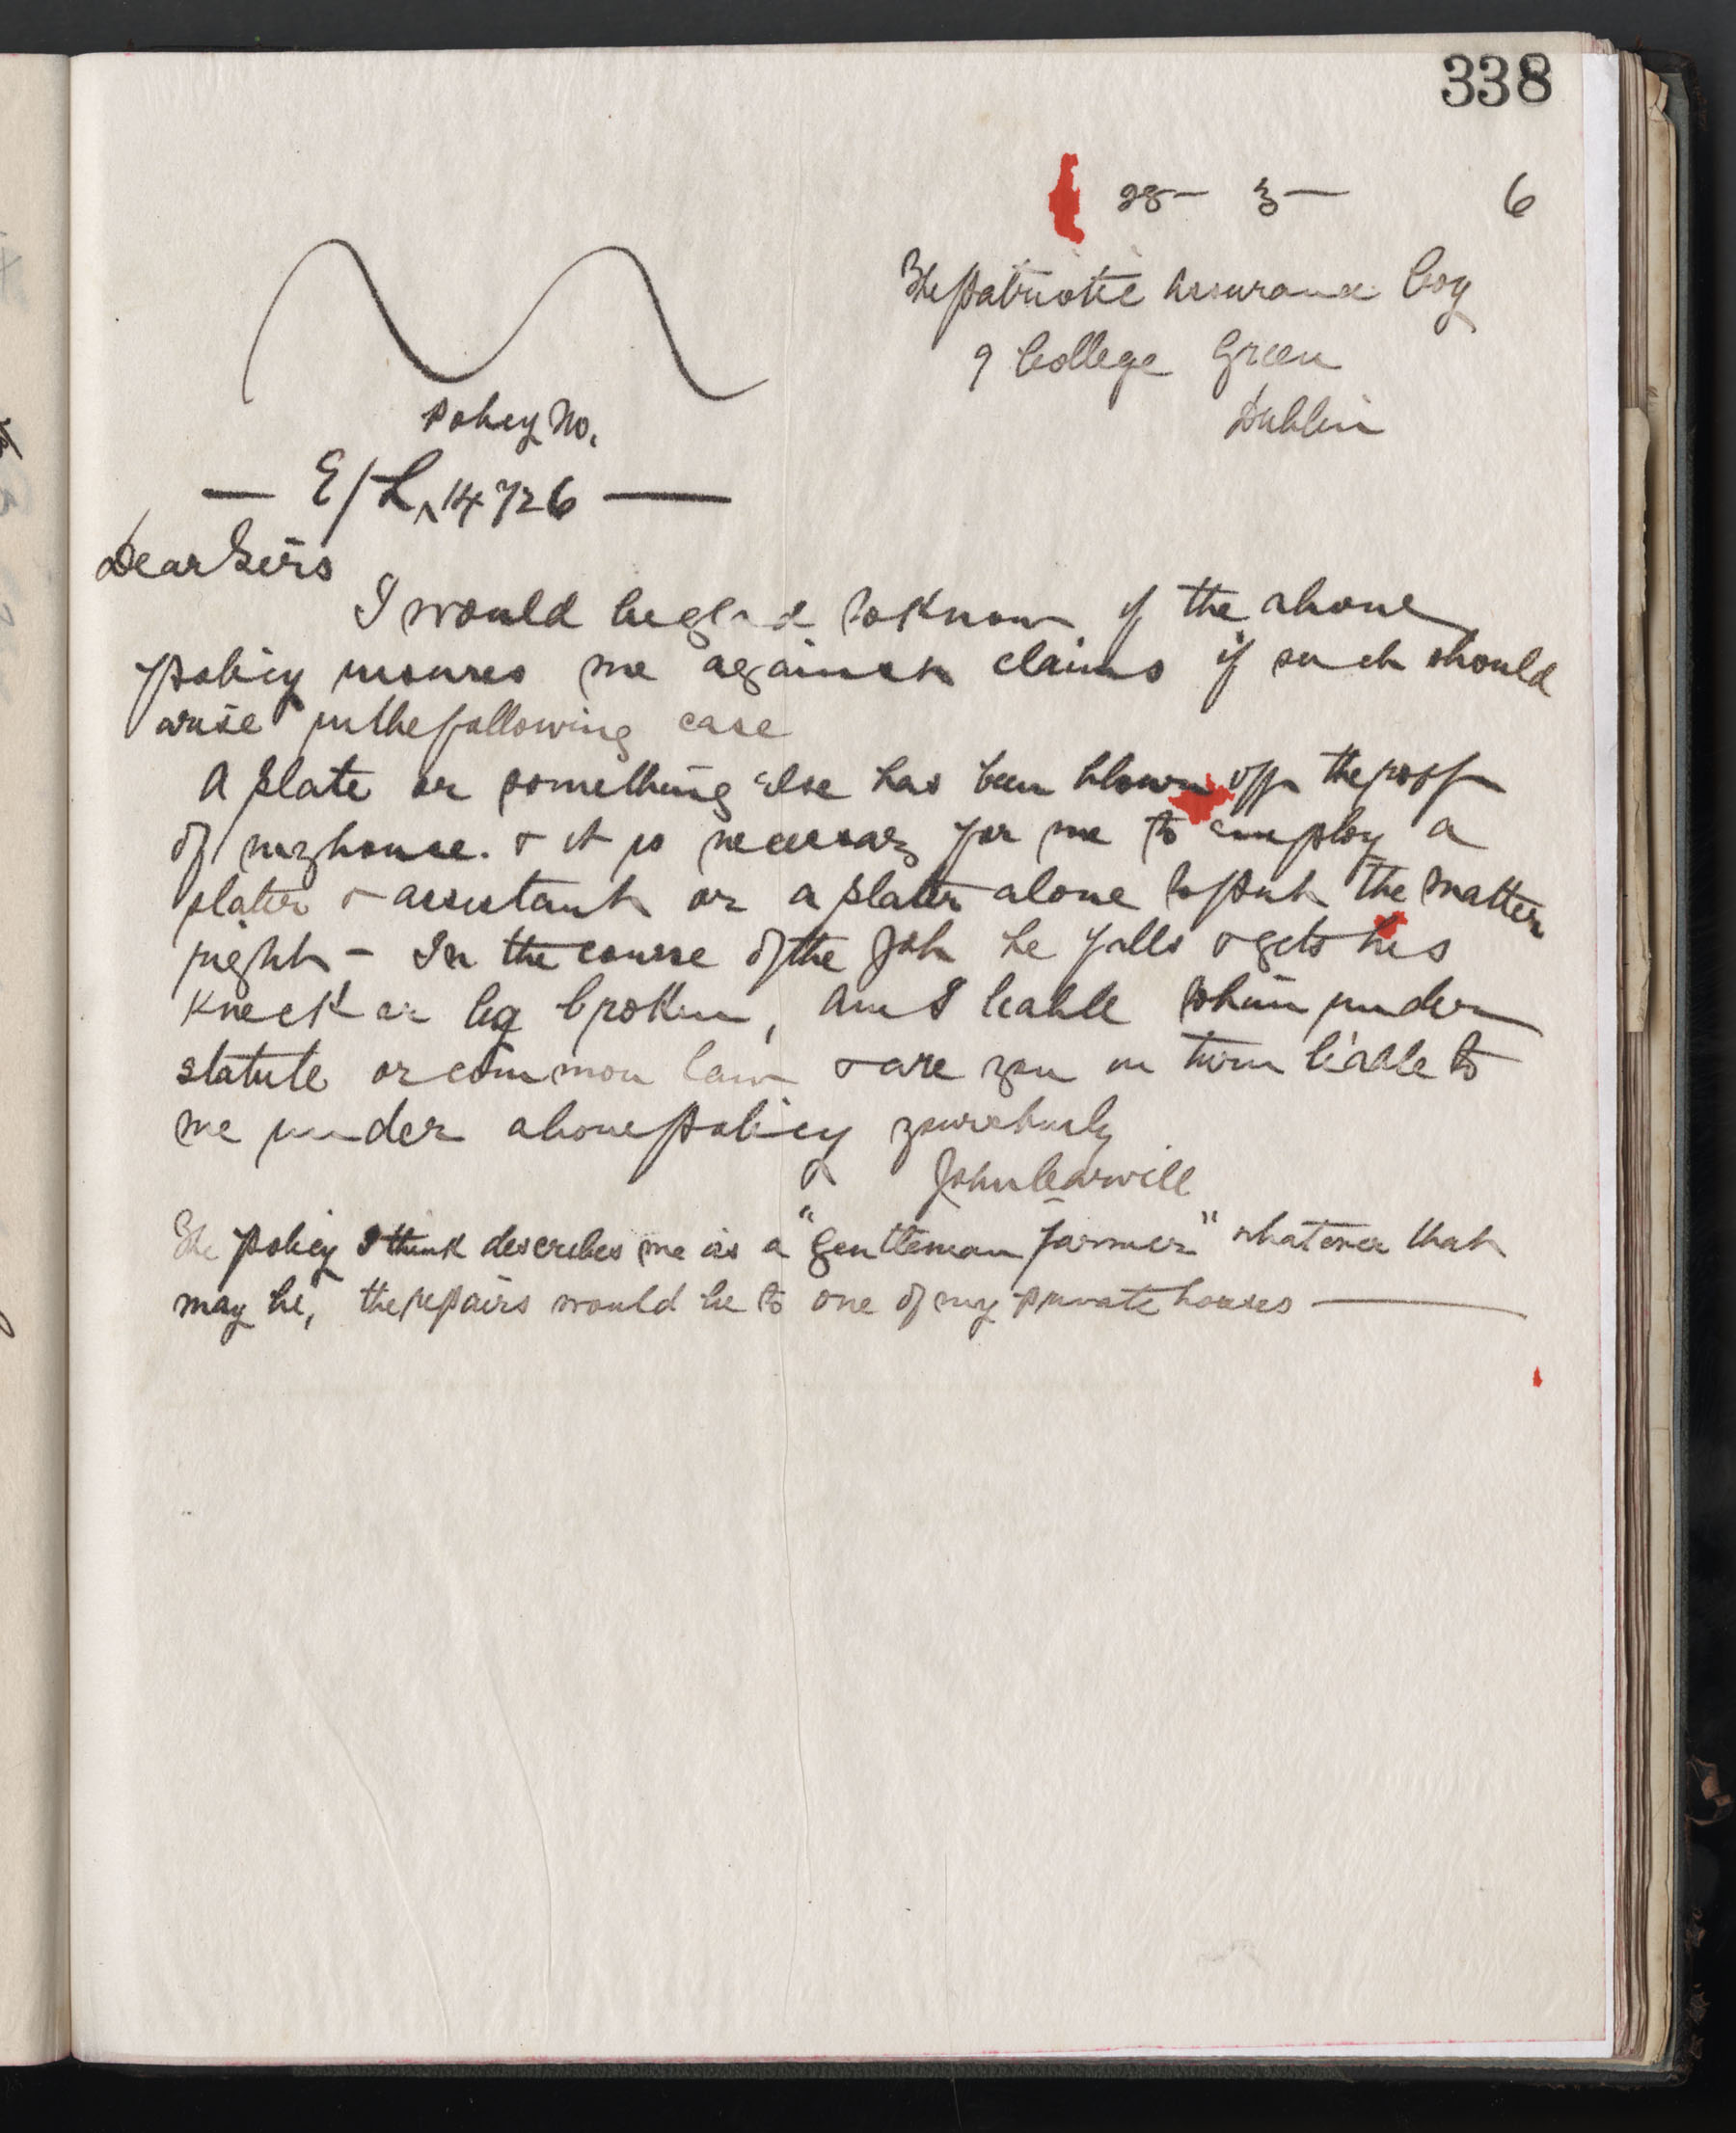 338
28 - 3 - 6
The Patriotic Assurance Coy
9 College Green
Dublin
Policy No.
— E/L ^ 14726 —
Dear Sirs
I would be glad to know if the above
policy insures me against claims if such should
arise in the following case
A slate or something else has been blown off the roof
of my house. & it is necessary for me to employ a
slater & assistant or a slater alone to put the matter
right - In the course of the Job he falls & gets his
kneck or leg broken, am I liable to him under
statute or common law & are you in turn liable to
me under above policy yours truly
John Carvill
The policy I think describes me as a "gentleman farmer" whatever that
may be, the repairs would be to one of my private houses —